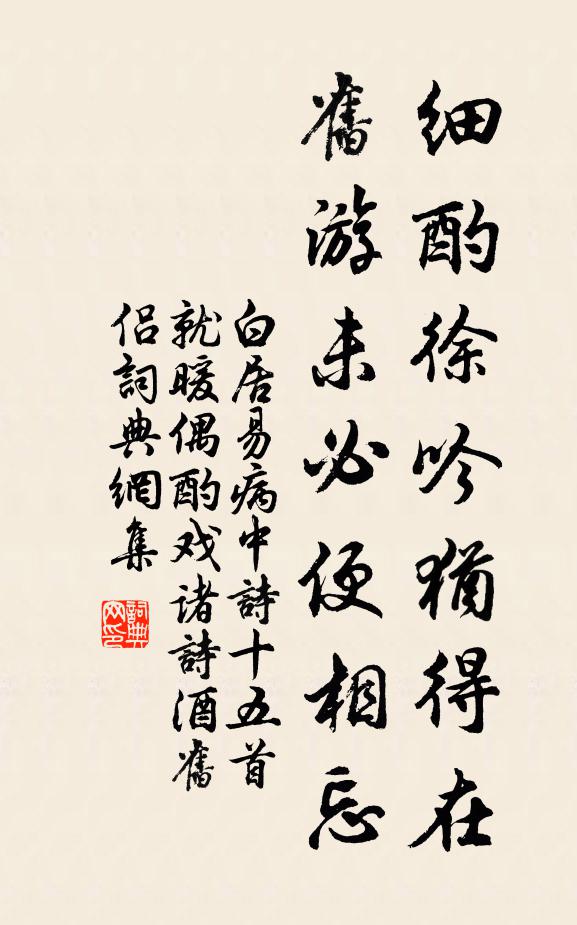 细酌徐吟犹得在
舊游未必便相忘
白居易病中詩十五首
就暖偶酌戏诸詩酒舊
侣詞典網集
詞典网印